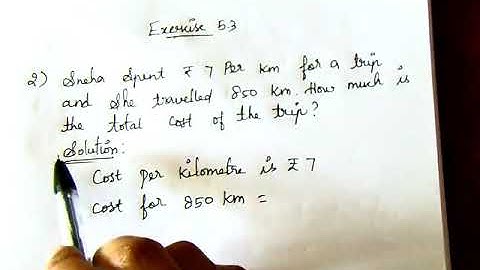 Exercise 5.3
2) Sneha spent ₹ 7 Per km for a trip
and she travelled 850 km. How much is
the total cost of the trip?
Solution:
Cost per kilometre is ₹ 7
Cost for 850 km =